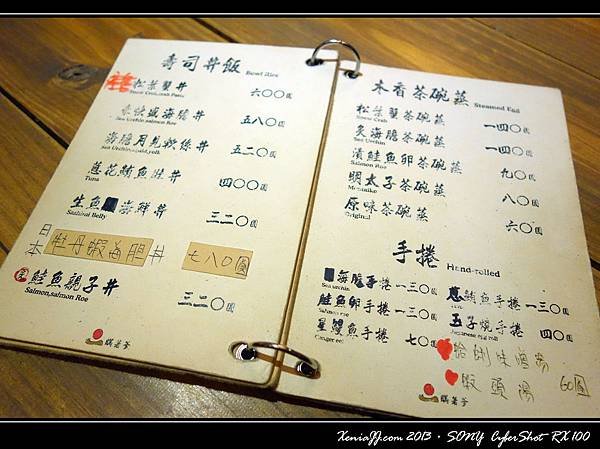 壽司丼飯
Bowl Rice
松葉蟹丼
六〇〇圓
海膽丼
Sea Urchin,salmon Roe
五八〇圓
海膽月見軟絲丼
五二〇圓
蔥花鮪魚丼
Tuna
四〇〇圓
生魚 海鮮丼
Sashimi Belly
三二〇圓
日本牡丹蝦海膽丼
七八〇圓
鮭魚親子丼
Salmon,salmon Roe
三二〇圓
木香茶碗蒸
Steamed
松葉蟹茶碗蒸
Snow Crab
一四〇圓
炙海膽茶碗蒸
Sea Urchin
一四〇圓
漬鮭魚卵茶碗蒸
Salmon Roe
九〇圓
明太子茶碗蒸
Mentaiko
八〇圓
原味茶碗蒸
Original
六〇圓
手捲
Hand-rolled
海膽手捲 一三〇圓
Sea urchin
蔥鮪魚手捲 一三〇圓
鮭魚卵手捲 一三〇圓
Salmon roe
玉子燒手捲 四〇圓
Japanese egg roll
星鰻魚手捲 七〇圓
Conger eel
蛤蜊味噌湯
蝦頭湯 60圓
XeniaJJ.com 2013 · SONY CyberShot RX100